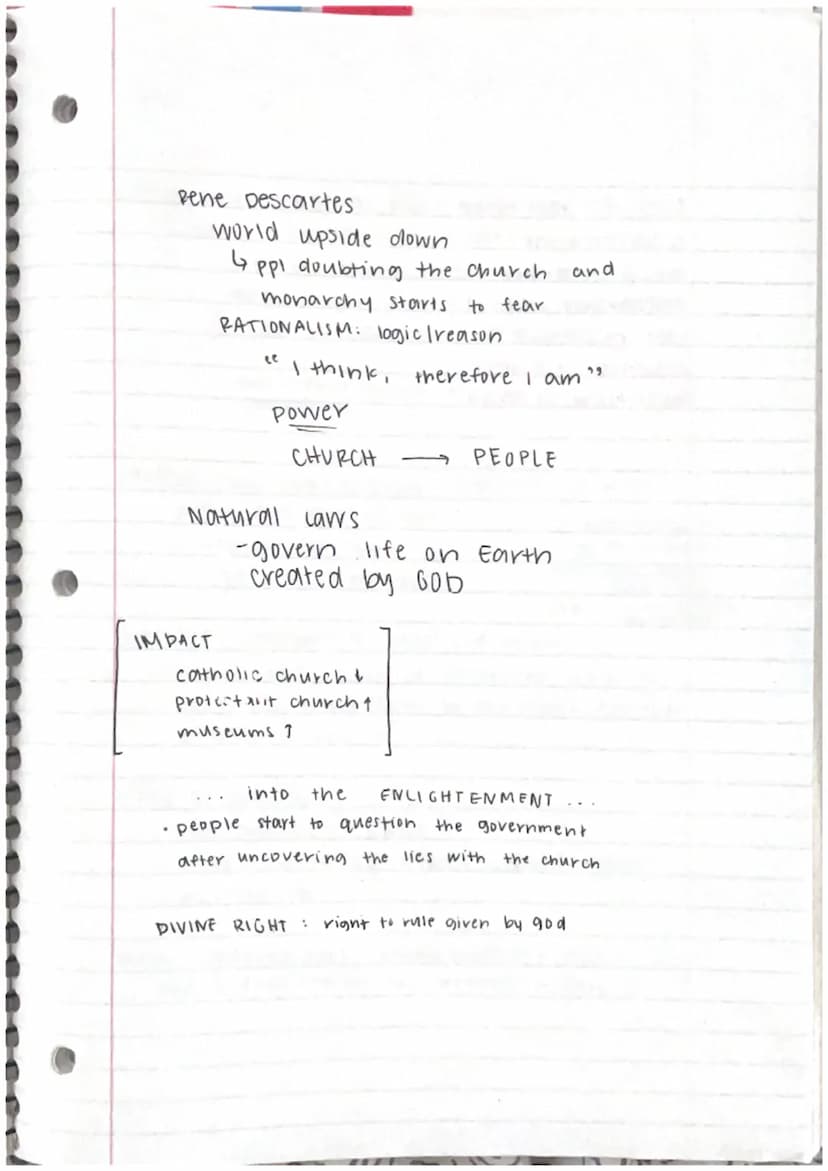 Rene Descartes
world upside down
↳ ppl doubting the church and
monarchy starts to fear
RATIONALISM: logic/reason
"I think, therefore I am"
power
CHURCH → PEOPLE
Natural laws
-govern life on Earth
created by GOD
IMPACT
catholic church ↓
protestant church ↑
museums ↑
... into the ENLIGHTENMENT ...
• people start to question the government
after uncovering the lies with the church
DIVINE RIGHT : right to rule given by god